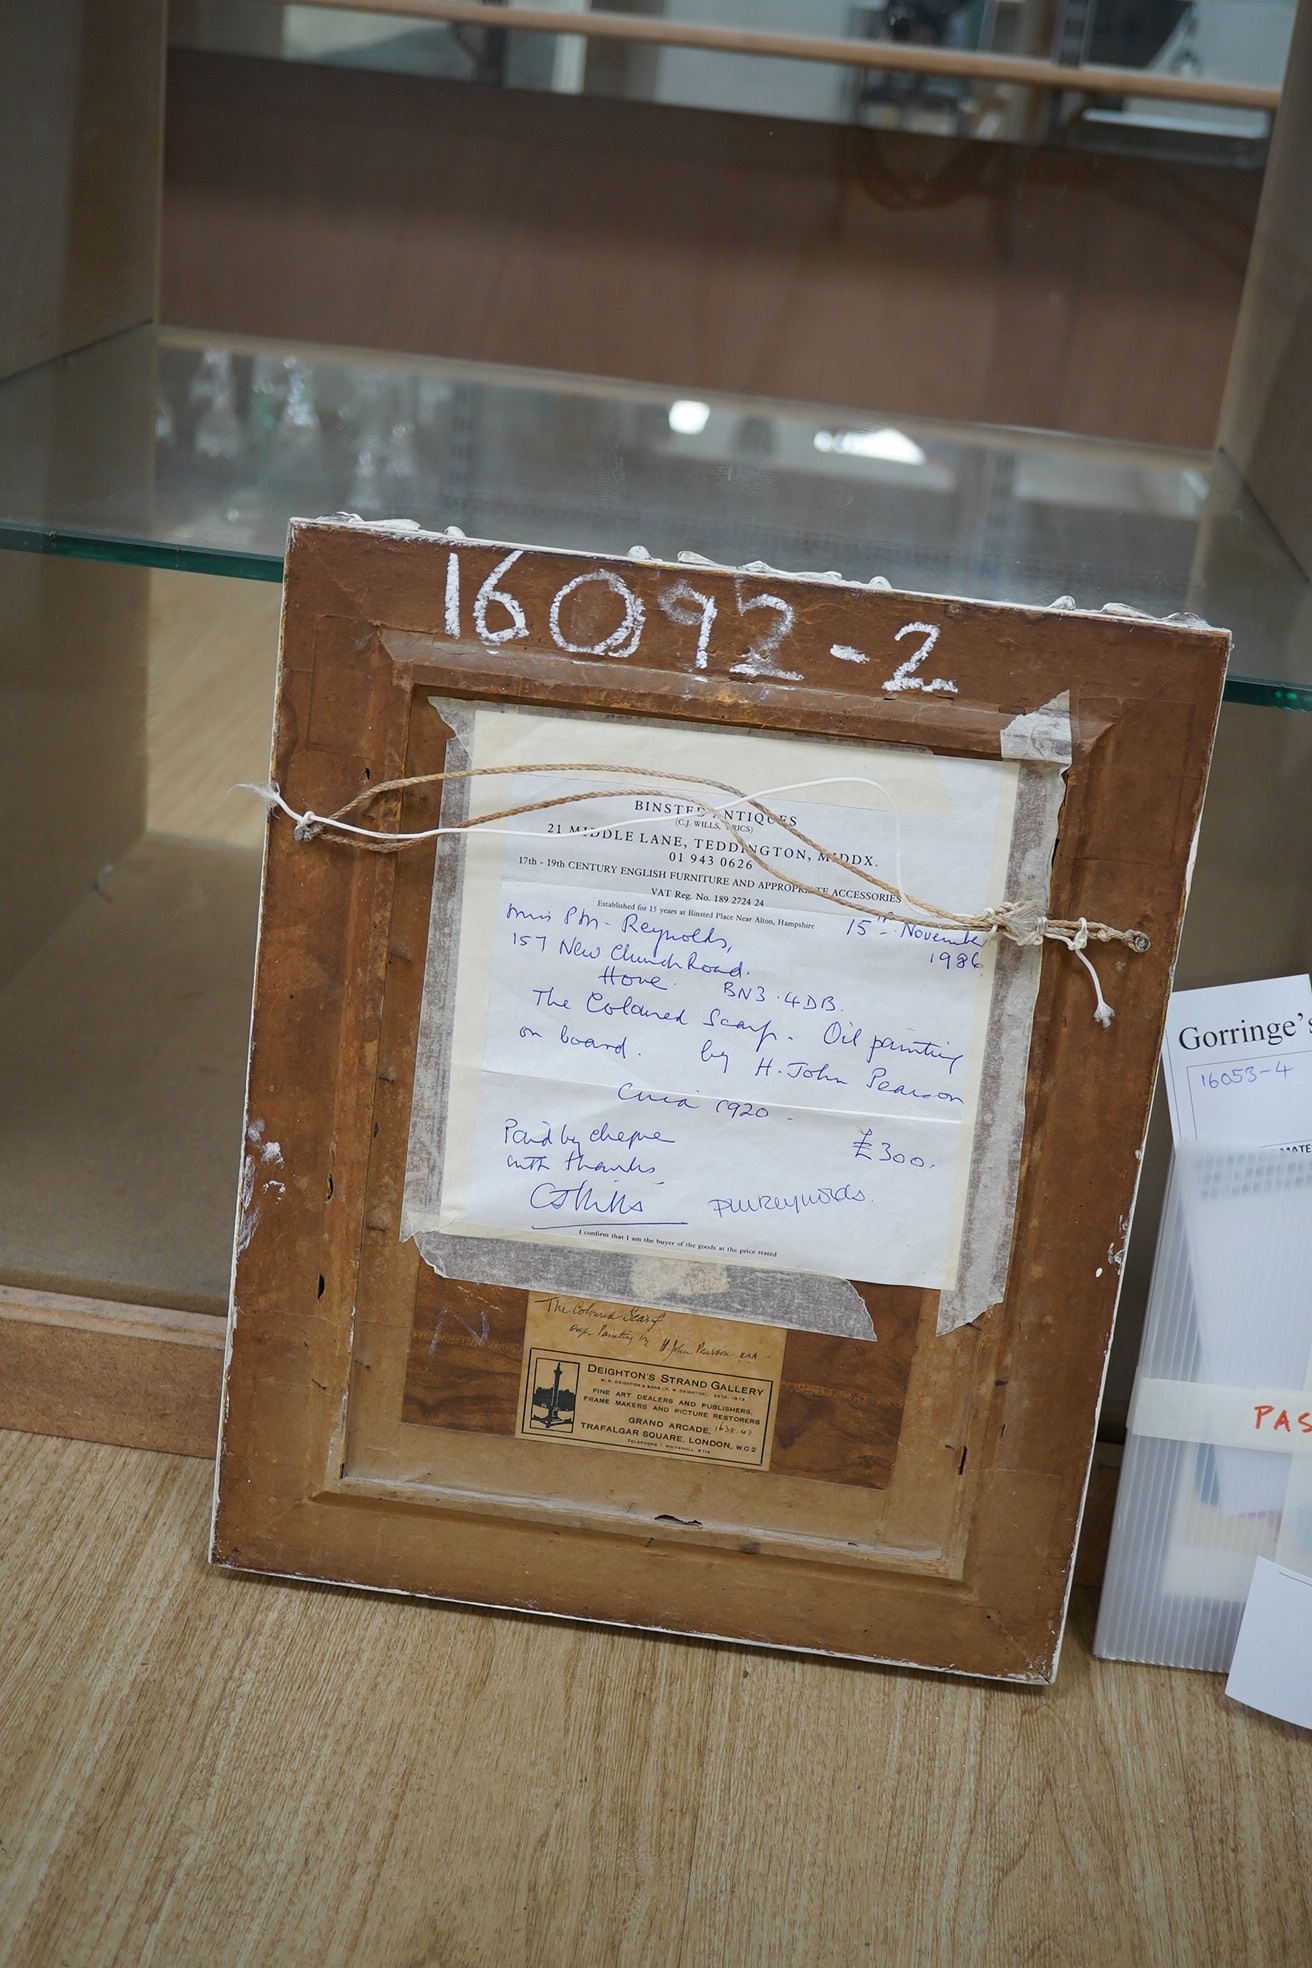 16092-2
BINSTED ANTIQUES
(C.J. WILLS, RICS)
21 MIDDLE LANE, TEDDINGTON, MIDDX.
01 943 0626
17th - 19th CENTURY ENGLISH FURNITURE AND APPROPRIATE ACCESSORIES
VAT Reg. No. 189 2724 24
Established for 15 years at Binsted Place Near Alton, Hampshire
15th November
1986
Miss P M. Reynolds,
157 New Church Road.
Hove. BN3.4DB.
The Coloured Scarf. Oil painting
on board. by H. John Pearson
Circa 1920.
Paid by cheque £300.
with thanks
CJWills PMReynolds.
I confirm that I am the buyer of the goods at the price stated
N
The Coloured Scarf
Painting by H. John Pearson
DEIGHTON'S STRAND GALLERY
FINE ART DEALERS AND PUBLISHERS,
FRAME MAKERS AND PICTURE RESTORERS
GRAND ARCADE,
TRAFALGAR SQUARE, LONDON, W.C.2
Gorringe's
16053-4
PAS